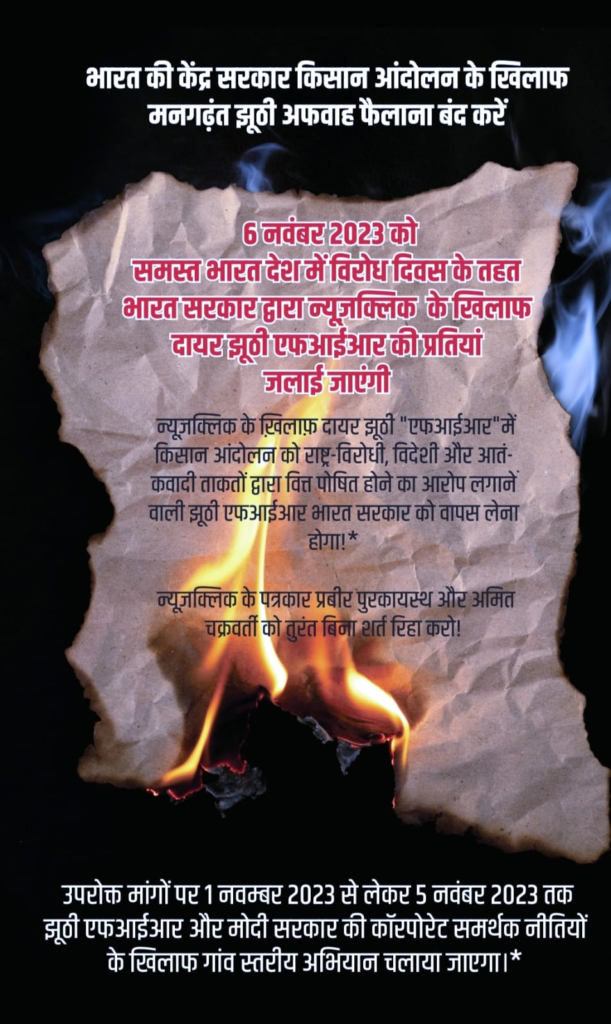 भारत की केंद्र सरकार किसान आंदोलन के खिलाफ
मनगढ़ंत झूठी अफवाह फैलाना बंद करें
6 नवंबर 2023 को
समस्त भारत देश में विरोध दिवस के तहत
भारत सरकार द्वारा न्यूजक्लिक के खिलाफ
दायर झूठी एफआईआर की प्रतियां
जलाई जाएंगी
न्यूज़क्लिक के ख़िलाफ़ दायर झूठी "एफआईआर"में
किसान आंदोलन को राष्ट्र-विरोधी, विदेशी और आतं-
कवादी ताकतों द्वारा वित्त पोषित होने का आरोप लगाने
वाली झूठी एफआईआर भारत सरकार को वापस लेना
होगा!*
न्यूज़क्लिक के पत्रकार प्रबीर पुरकायस्थ और अमित
चक्रवर्ती को तुरंत बिना शर्त रिहा करो!
उपरोक्त मांगों पर 1 नवम्बर 2023 से लेकर 5 नवंबर 2023 तक
झूठी एफआईआर और मोदी सरकार की कॉरपोरेट समर्थक नीतियों
के खिलाफ गांव स्तरीय अभियान चलाया जाएगा।*